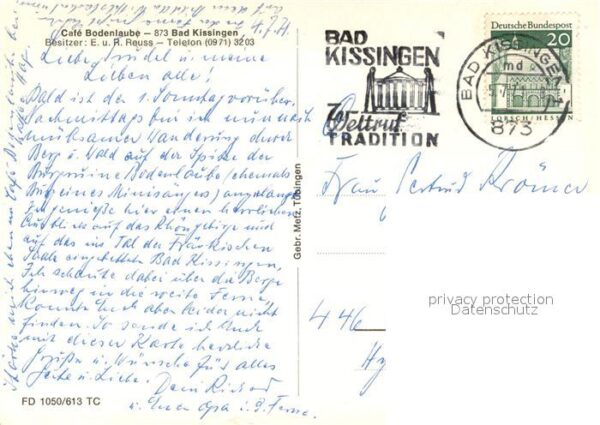 4.7.71
Café Bodenlaube – 873 Bad Kissingen
Besitzer: E. u. R. Reuss – Telefon (0971) 3203
Liebe Trudel u. meine
Lieben alle!
Bald ist der 1. Sonntag vorüber.
Nachmittags bin ich nun nach
mühsamer Wanderung durch
Berg u. Wald auf der Spitze der
Burgruine Bodenlaube (ehemals
Burg eines Minisängers) angelangt
u. genieße hier einen herrlichen
Ausblick auf das Rhöngebirge und
auf das ins Tal der Fränkischen
Saale eingebettete Bad Kissingen.
Ich schaute dabei über die Berge
hinweg in die weite Ferne,
konnte Euch aber leider nicht
finden. So sende ich Euch
mit dieser Karte herzliche
Grüße u. Wünsche für alles
Gute u. Liebe. Dein Richard
u. Euer Opa i. d. Ferne.
FD 1050/613 TC
Gebr. Metz, Tübingen
BAD
KISSINGEN
Weltruf
TRADITION
BAD KISSINGEN 1
md
873
Deutsche Bundespost
20
LORSCH / HESSEN
Frau Gertrud Krömer
446
privacy protection
Datenschutz